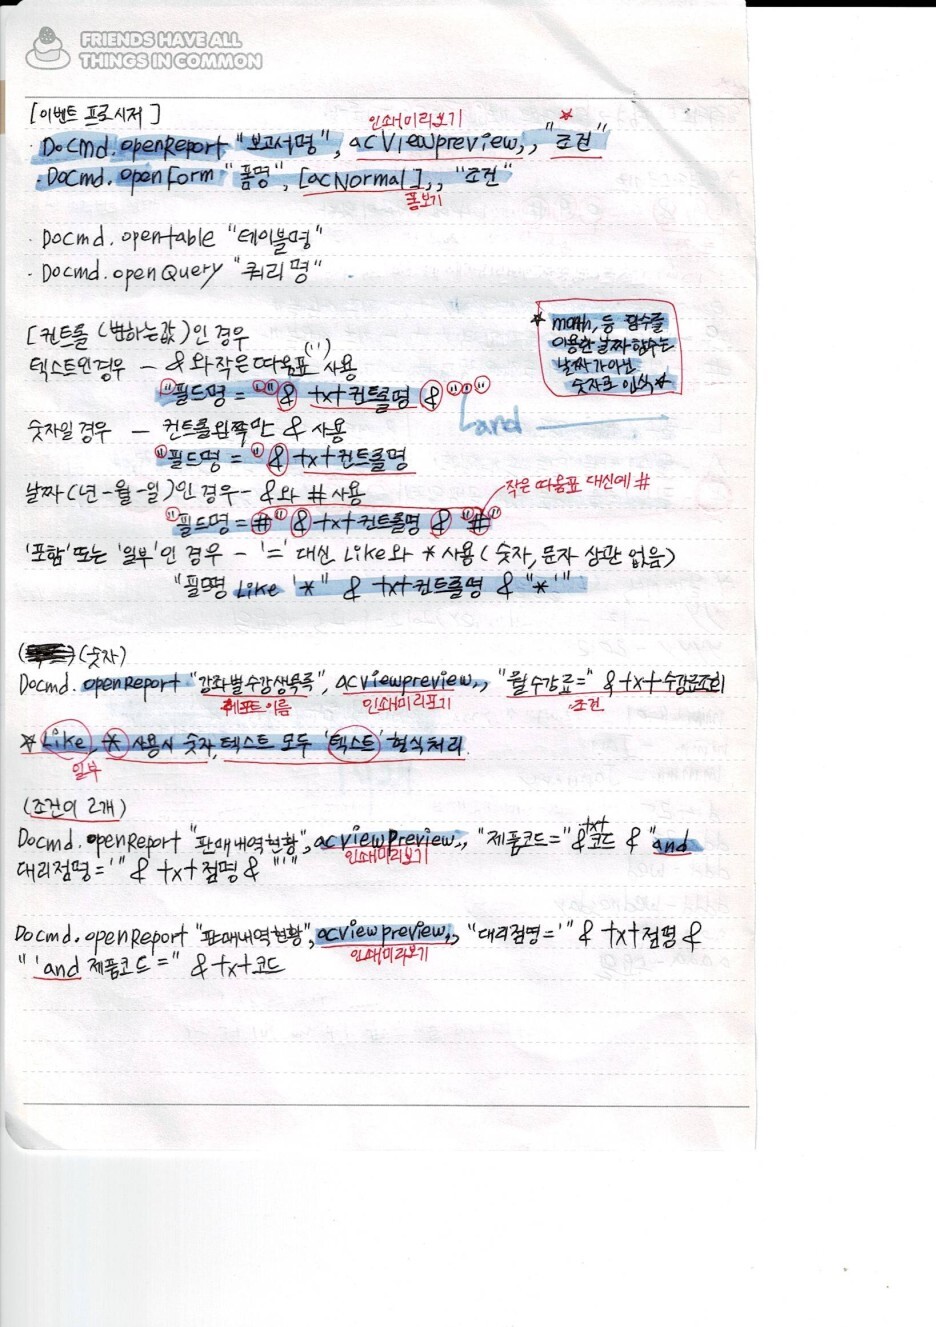 FRIENDS HAVE ALL
THINGS IN COMMON
[이벤트 프로시저]
인쇄미리보기
*
· Docmd.openReport "보고서명", acViewpreview,, "조건"
· Docmd.openform "폼명", [acNormal],, "조건"
폼보기
· Docmd.opentable "테이블명"
· Docmd.openQuery "쿼리명"
* month, 등 함수를
이용한 날짜함수는
날짜가 아닌
숫자로 인식 *
[컨트롤 (변하는값)인 경우
텍스트인경우 - & 와 작은 따옴표(' ') 사용
"필드명 = '" & txt컨트롤명 & "'"
and
숫자일 경우 - 컨트롤왼쪽만 & 사용
"필드명 = " & txt컨트롤명
날짜(년-월-일)인 경우 - &와 # 사용
작은 따옴표 대신에 #
"필드명 = #" & txt컨트롤명 & "#"
'포함' 또는 '일부'인 경우 - '=' 대신 Like와 * 사용 (숫자, 문자 상관 없음)
"필명 Like '*" & txt컨트롤명 & "*'"
(숫자)
Docmd.openReport "강좌별수강생목록", acviewpreview,, "월수강료=" & txt수강료조회
레포트이름 인쇄미리보기 조건
* Like, * 사용시 숫자, 텍스트 모두 '텍스트' 형식처리
일부
(조건이 2개)
Docmd.openReport "판매내역현황", acviewpreview,, "제품코드=" & txt코드 & "and
인쇄미리보기
대리점명='" & txt점명 & "'"
Docmd.openReport "판매내역현황", acviewpreview,, "대리점명='" & txt점명 &
인쇄미리보기
"' and 제품코드=" & txt코드